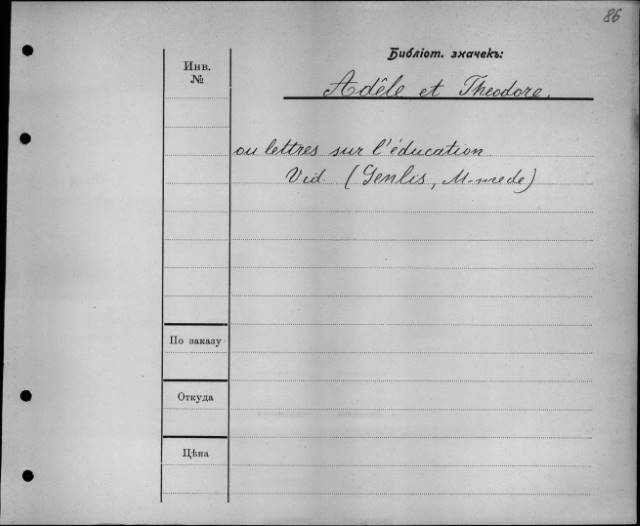 86
Библіот. значекъ:
Инв.
№
Adêle et Theodore.
ou lettres sur l'éducation
Vid. (Genlis, M-me de)
По заказу
Откуда
Цѣна